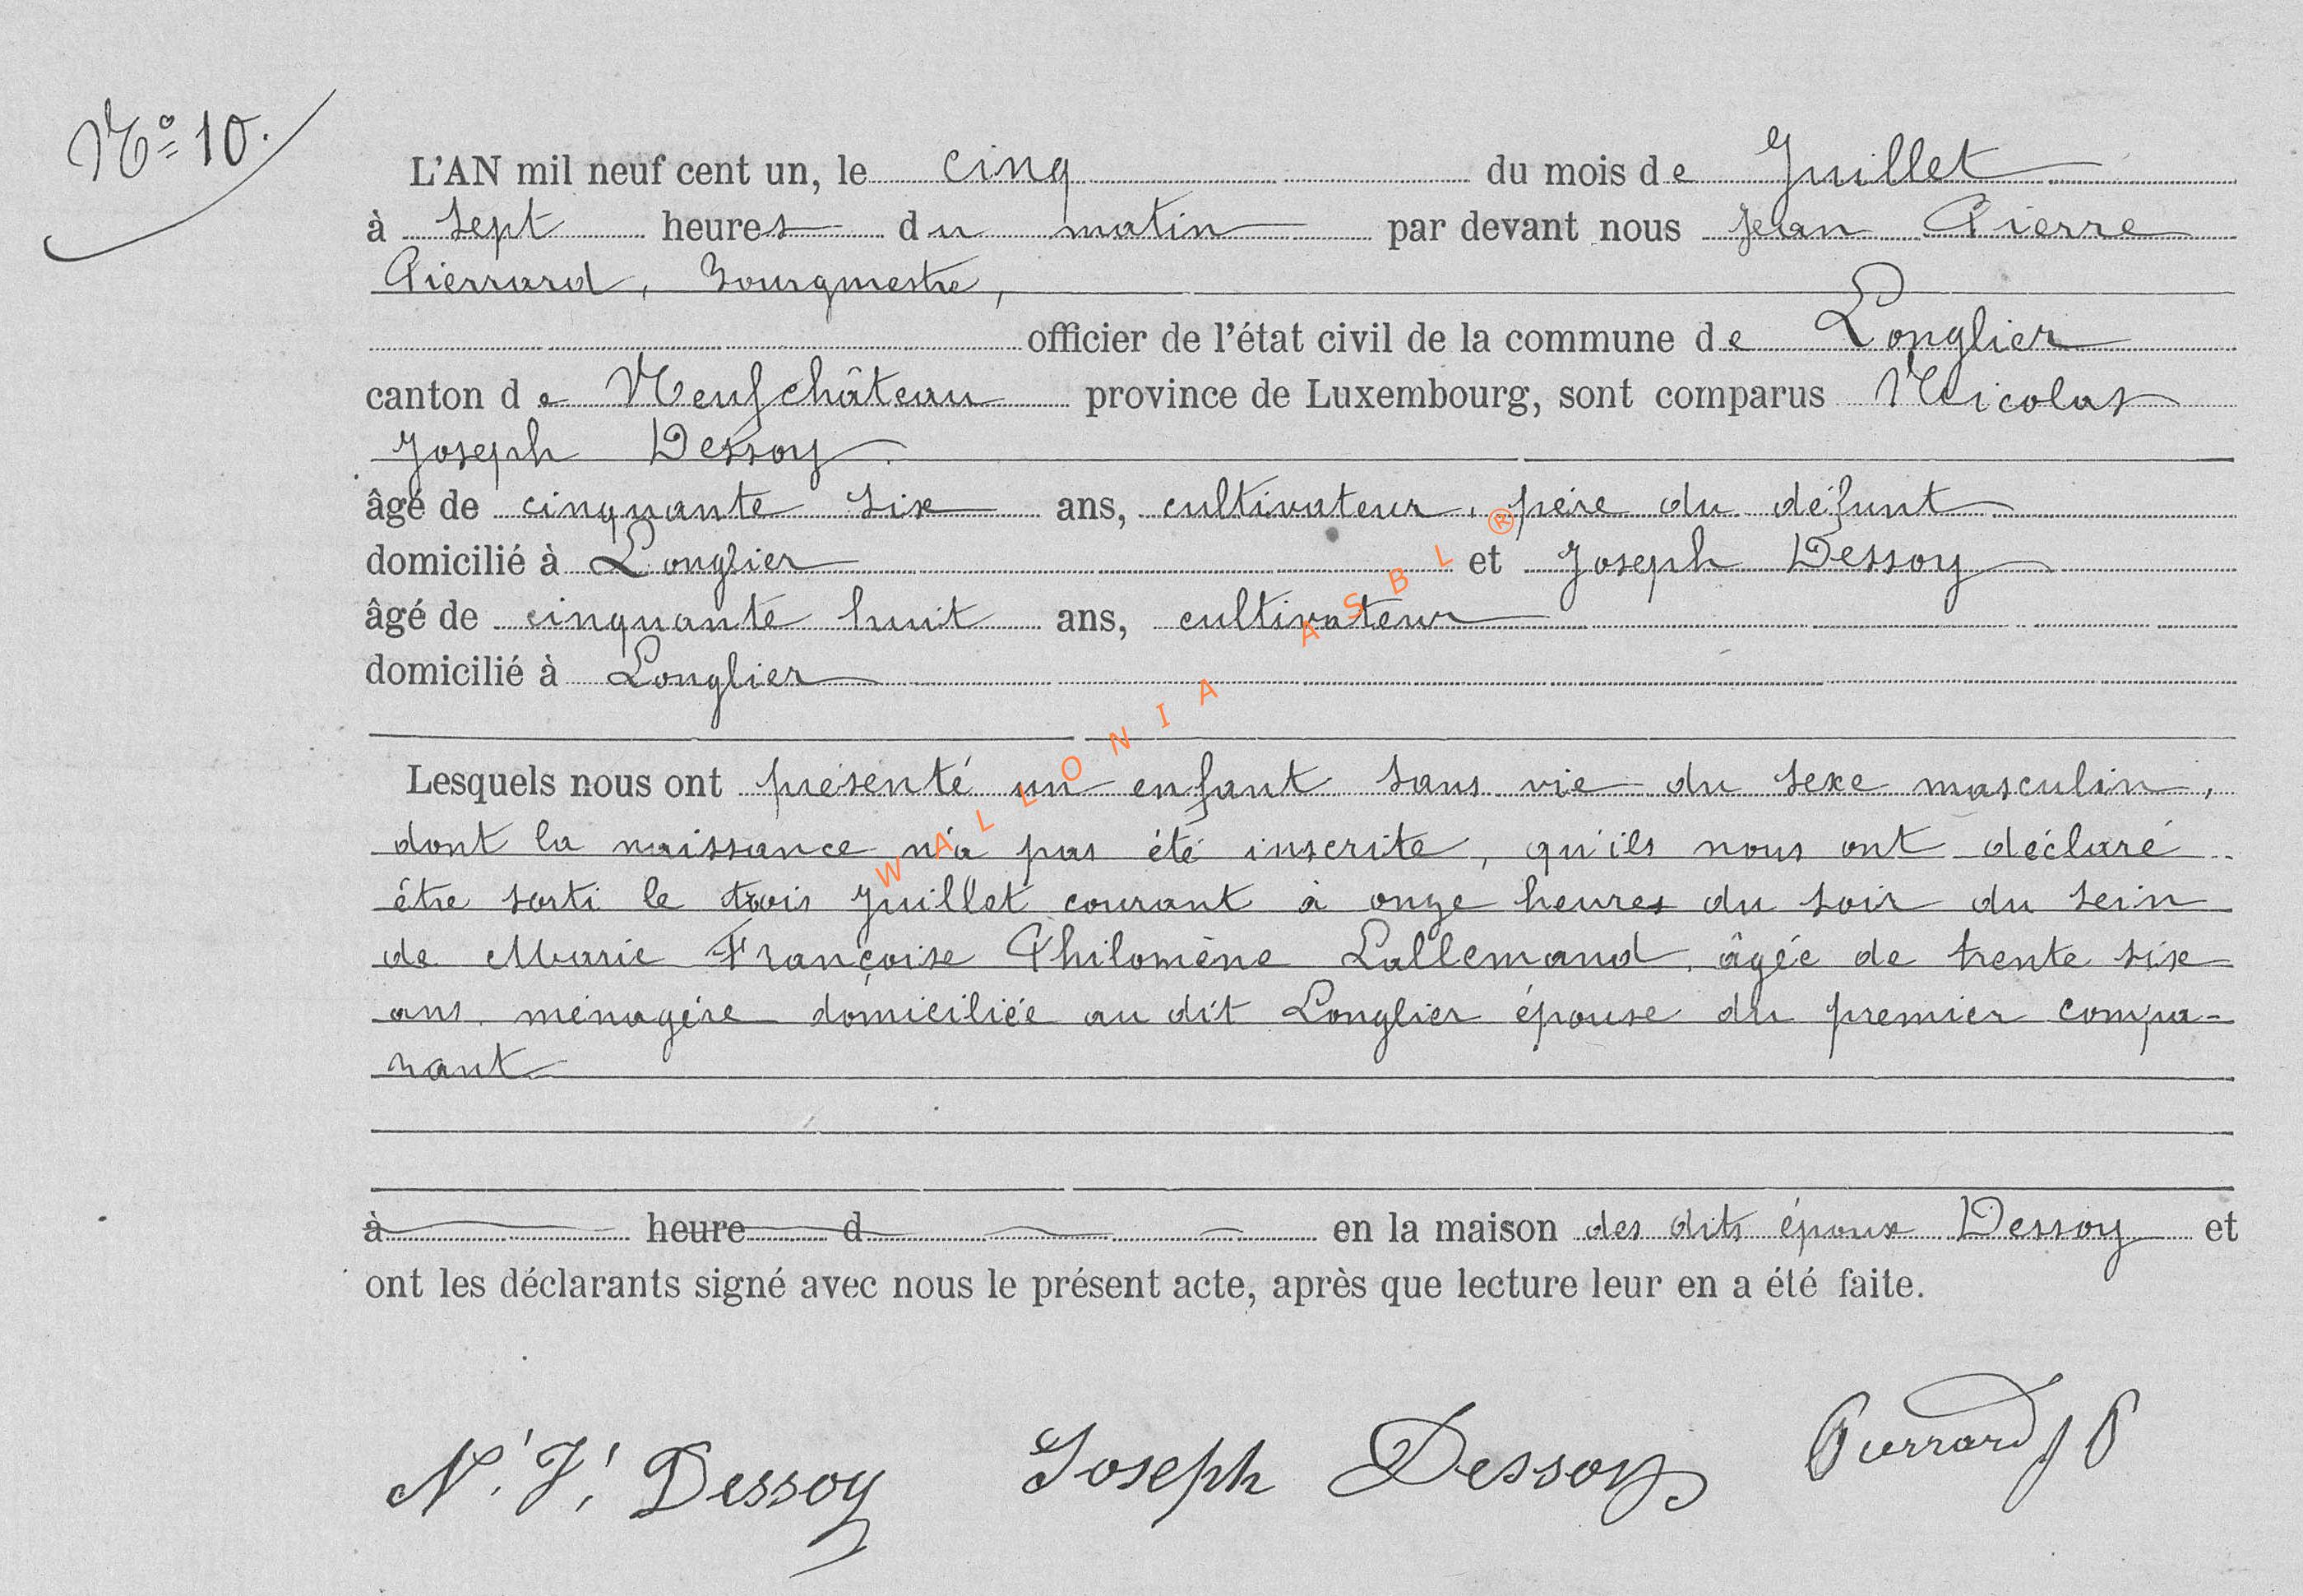 Nº 10.
L'AN mil neuf cent un, le cinq du mois de Juillet
à sept heures du matin par devant nous Jean Pierre
Pierrard, Bourgmestre,
officier de l'état civil de la commune de Longlier
canton de Neufchâteau province de Luxembourg, sont comparus Nicolas
Joseph Dessoy
âgé de cinquante six ans, cultivateur, père du défunt
domicilié à Longlier et Joseph Dessoy
âgé de cinquante huit ans, cultivateur
domicilié à Longlier
Lesquels nous ont présenté un enfant sans vie du sexe masculin,
dont la naissance n'a pas été inscrite, qu'ils nous ont déclaré
être sorti le trois Juillet courant à onze heures du soir du sein
de Marie Françoise Philomène Lallemand, âgée de trente six
ans, ménagère domiciliée au dit Longlier épouse du premier compa-
rant
à heure d en la maison des dits époux Dessoy et
ont les déclarants signé avec nous le présent acte, après que lecture leur en a été faite.
N. J. Dessoy Joseph Dessoy Pierrard J P
WALLONIA ASBL ®